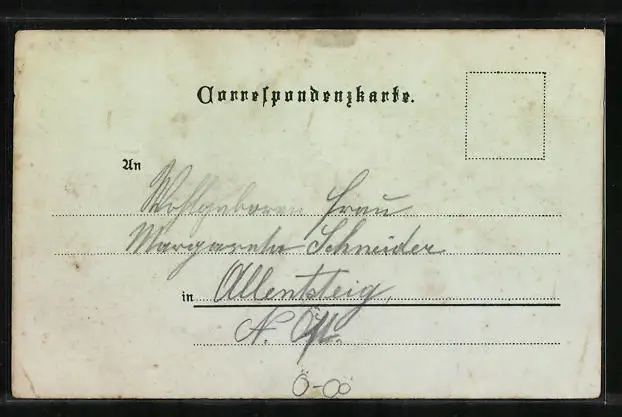 Correspondenzkarte.
An
Wohlgeboren Frau
Margareta Schneider
in Allentsteig,
N. Öst.